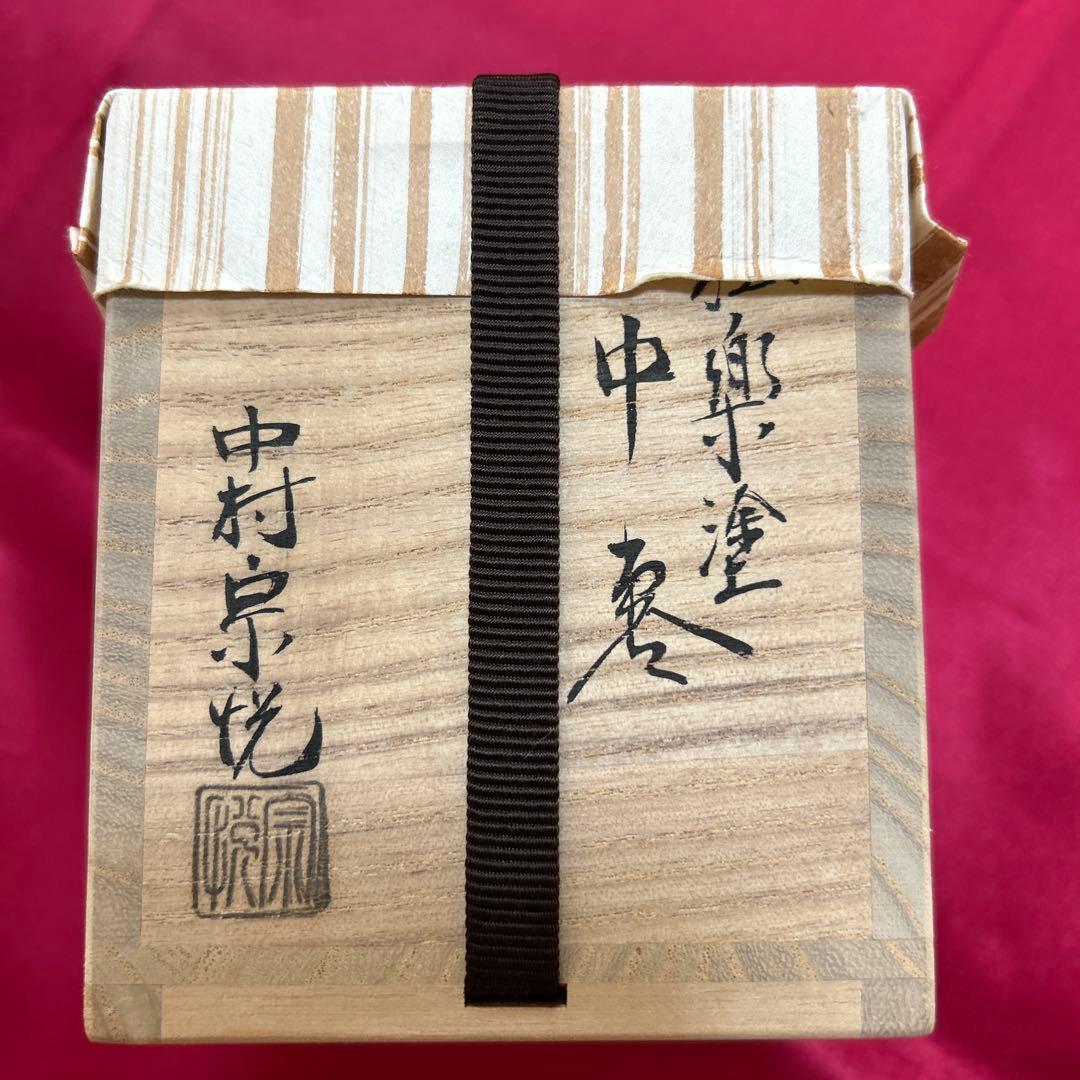 樂塗
中棗
中村宗悦
宗悦